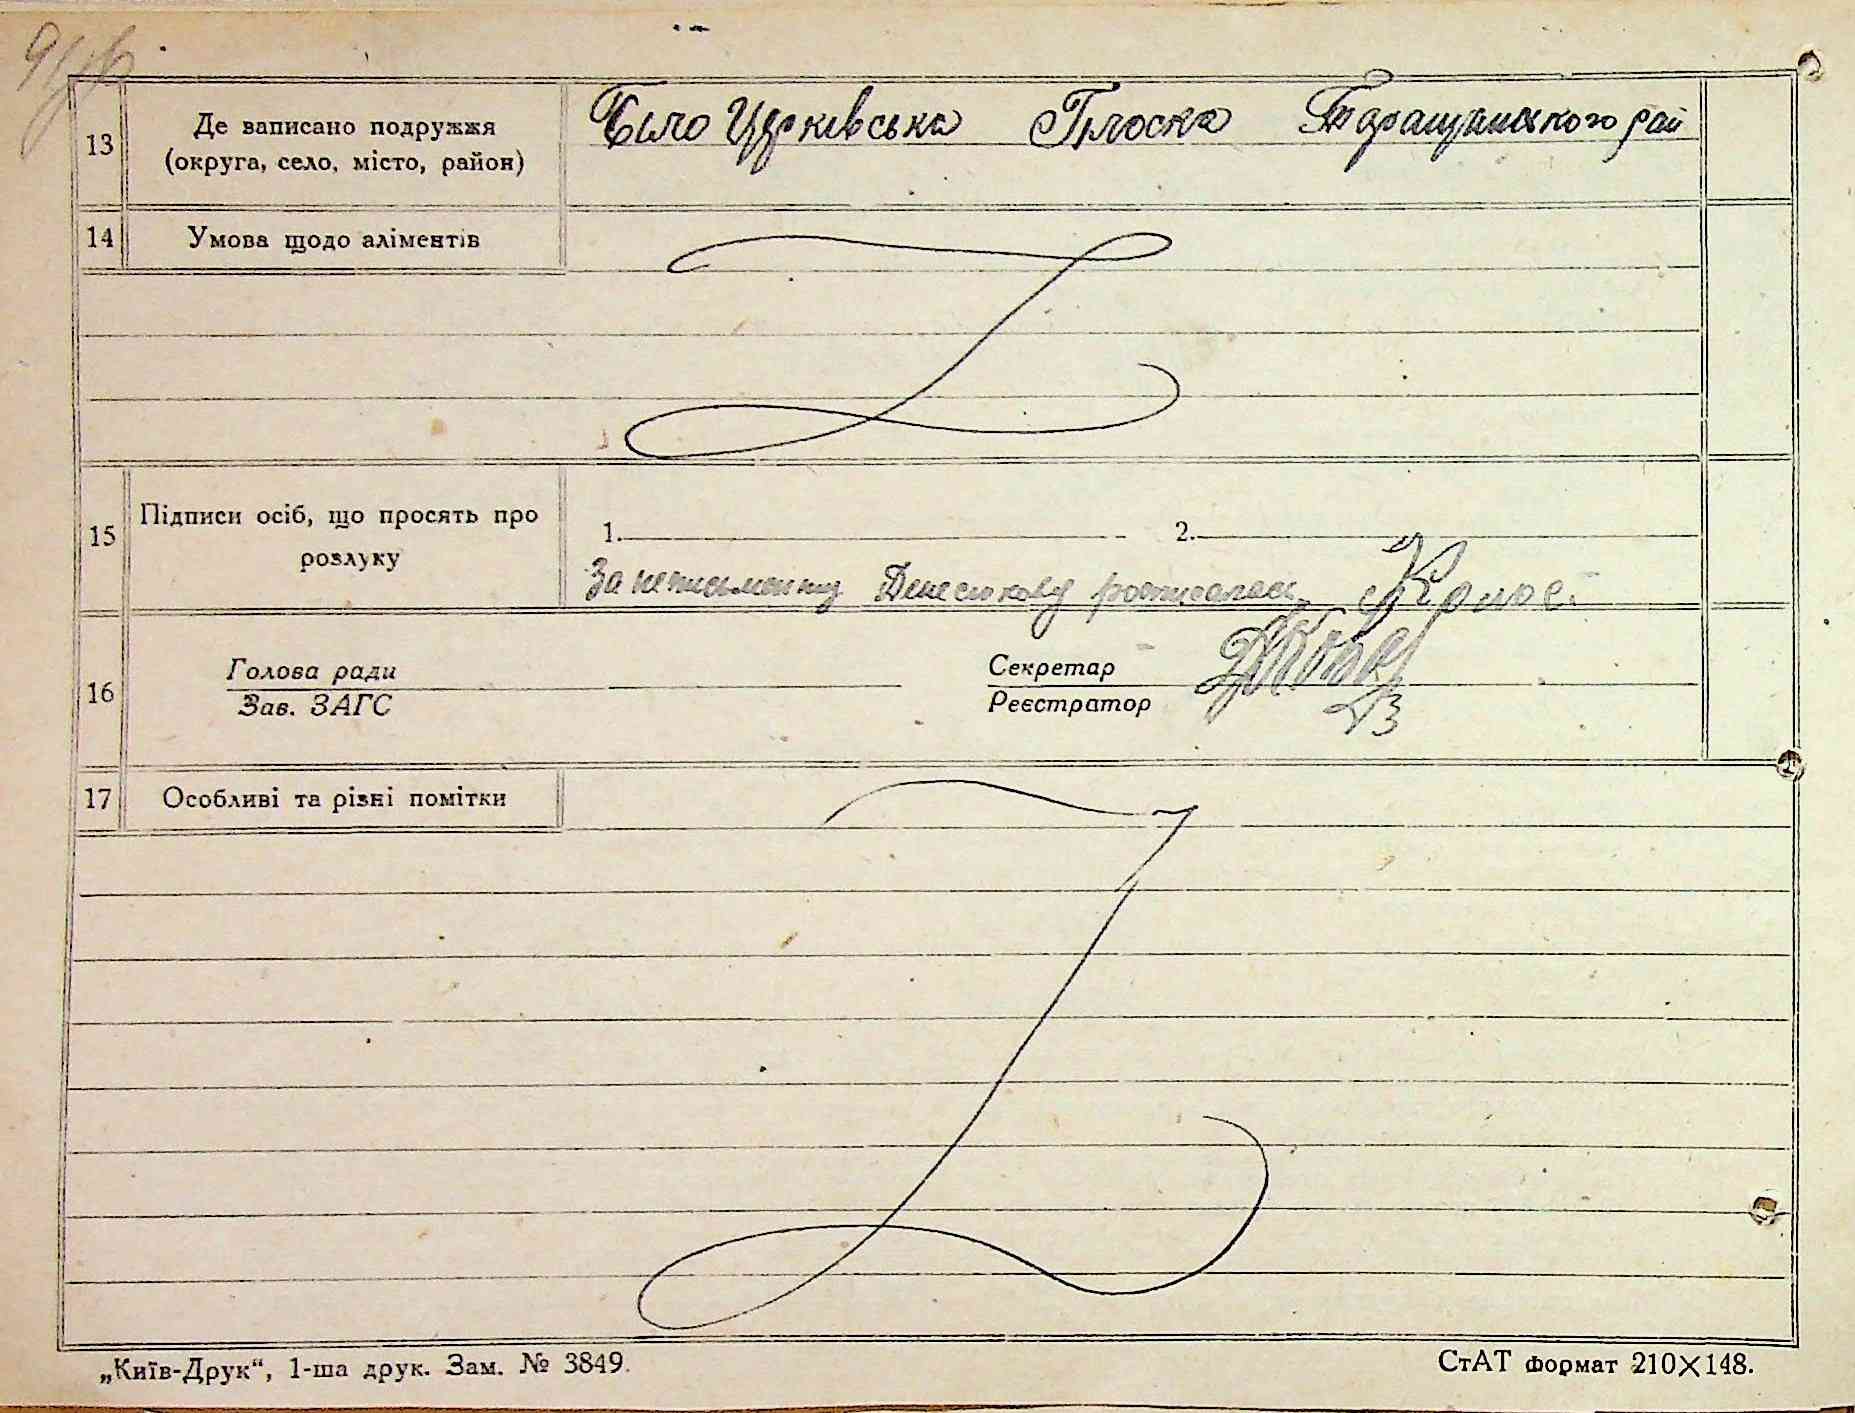 13
Де записано подружжя
(округа, село, місто, район)
Біло Церківська Плоска Таращанського рай
14
Умова щодо аліментів
15
Підписи осіб, що просять про
розлуку
1.
2.
За неписьменну Денесюкову росписалась
16
Голова ради
Зав. ЗАГС
Секретар
Реєстратор
17
Особливі та різні помітки
„Київ-Друк“, 1-ша друк. Зам. № 3849.
СтАТ формат 210×148.